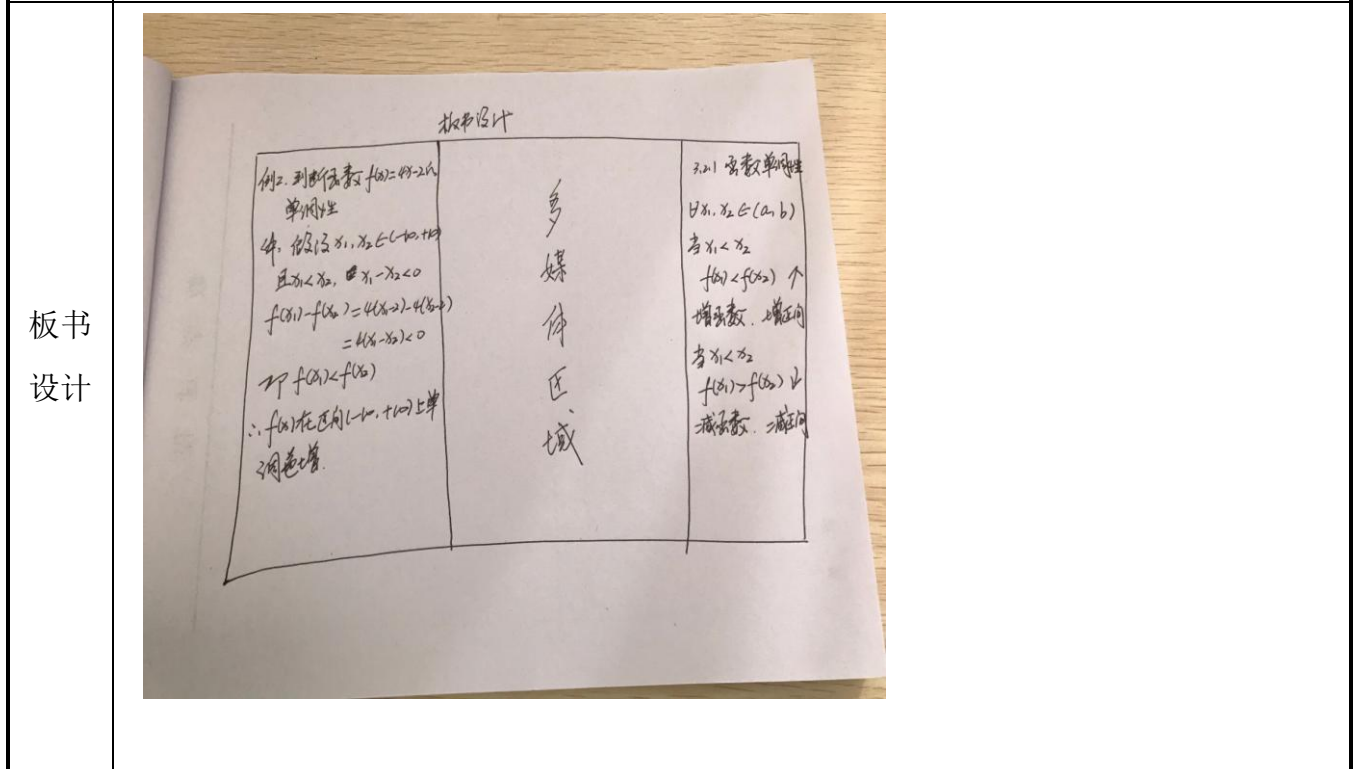 板书
设计
板书设计
例2. 判断函数f(x)=4x-2的
单调性
解: 假设x₁, x₂∈(-∞,+∞)
且x₁<x₂, x₁-x₂<0
f(x₁)-f(x₂)=4(x₁-2)-4(x₂-2)
=4(x₁-x₂)<0
即 f(x₁)<f(x₂)
∴f(x)在区间(-∞,+∞)上单
调递增.
多
媒
体
区
域
3.2.1 函数单调性
∀x₁, x₂∈(a, b)
当x₁<x₂
f(x₁)<f(x₂) ↑
增函数. 增区间
当x₁<x₂
f(x₁)>f(x₂) ↓
减函数. 减区间